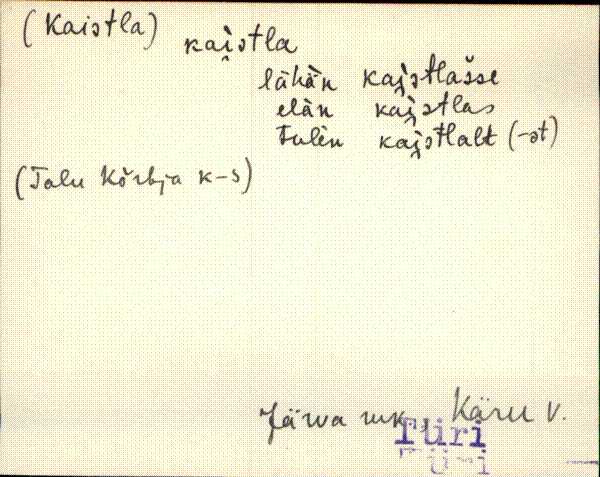 (Kaistla) kai̯stla
lähän kai̯stlašse
elàn kai̯stlas
tulèn kai̯stlalt (-st)
(Talu Kõrbja k-s)
Järva mk., Käru v.
Türi
Türi